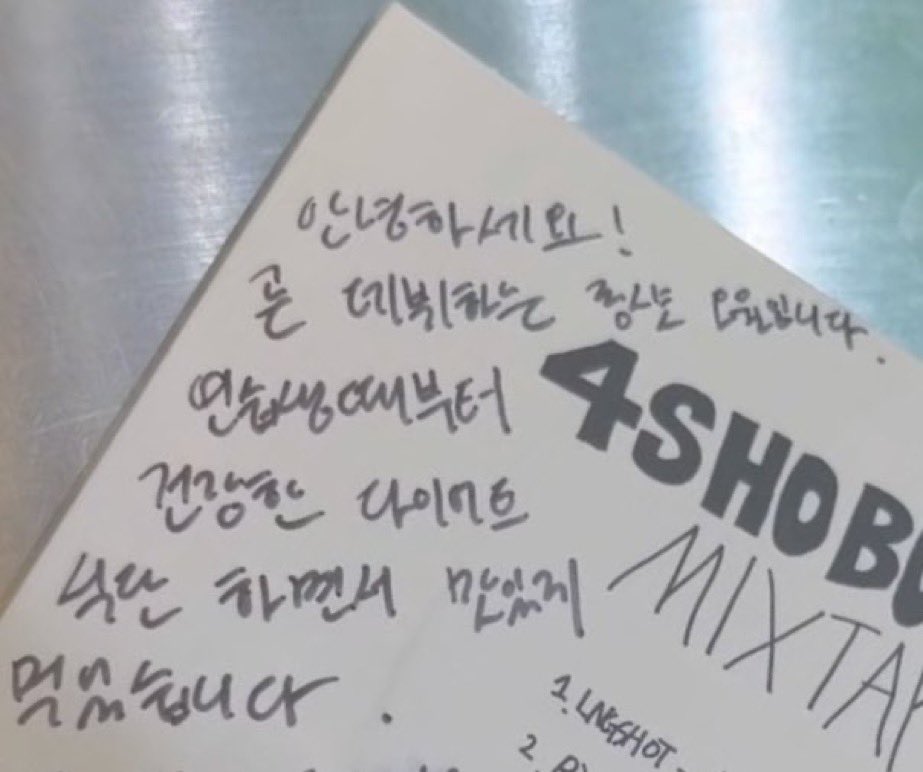 안녕하세요!
곧 데뷔하는 롱샷 입니다.
연습생때부터
건강한 다이어트
식단 하면서 맛있게
먹었습니다.
4SHOBO
MIXTAP
1. LNGSHOT
2.